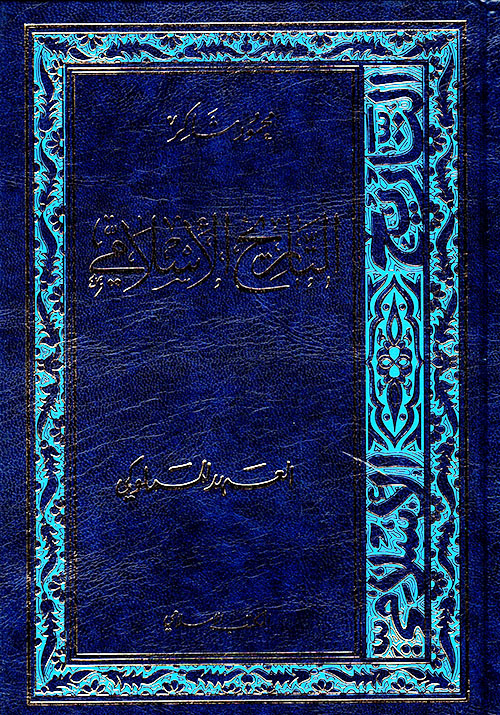 محمود شاكر
التاريخ الإسلامي
العهد المملوكي
المكتب الإسلامي
التاريخ الإسلامي